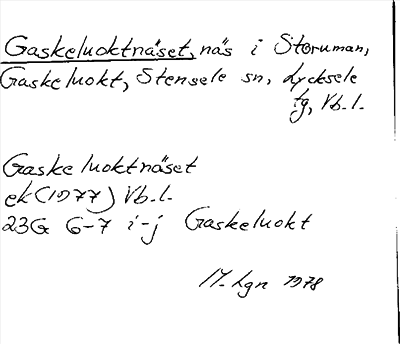 Gaskeluoktnäset, näs i Storuman,
Gaskeluokt, Stensele sn, Lycksele
tg, Vb.l.
Gaskeluoktnäset
ek (1977) Vb.l.
23G 6-7 i-j Gaskeluokt
1978